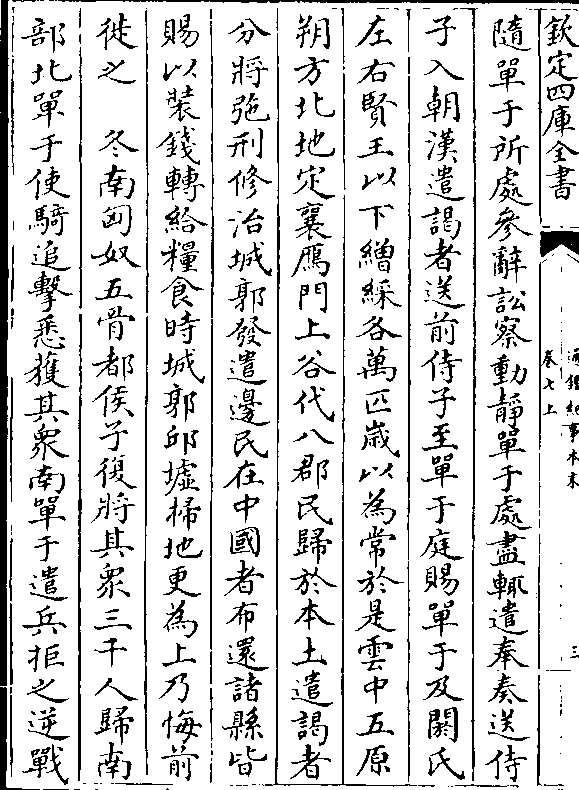 欽定四庫全書
通鑑紀事本末
卷七上
三
隨單于所處參辭訟察動靜單于處盡輒遣奉奏送侍
子入朝漢遣謁者送前侍子至單于庭賜單于及閼氏
左右賢王以下繒綵各萬匹歲以為常於是雲中五原
朔方北地定襄鴈門上谷代八郡民歸於本土遣謁者
分將弛刑修治城郭發遣邊民在中國者布還諸縣皆
賜以裝錢轉給糧食時城郭邱墟掃地更為上乃悔前
徙之　冬南匈奴五骨都侯子復將其衆三千人歸南
部北單于使騎追擊悉獲其衆南單于遣兵拒之逆戰